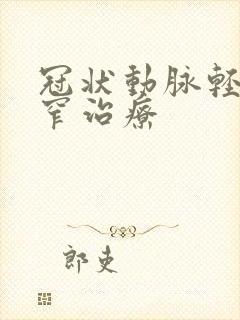 冠状動脉轻
窄治療
郎吏